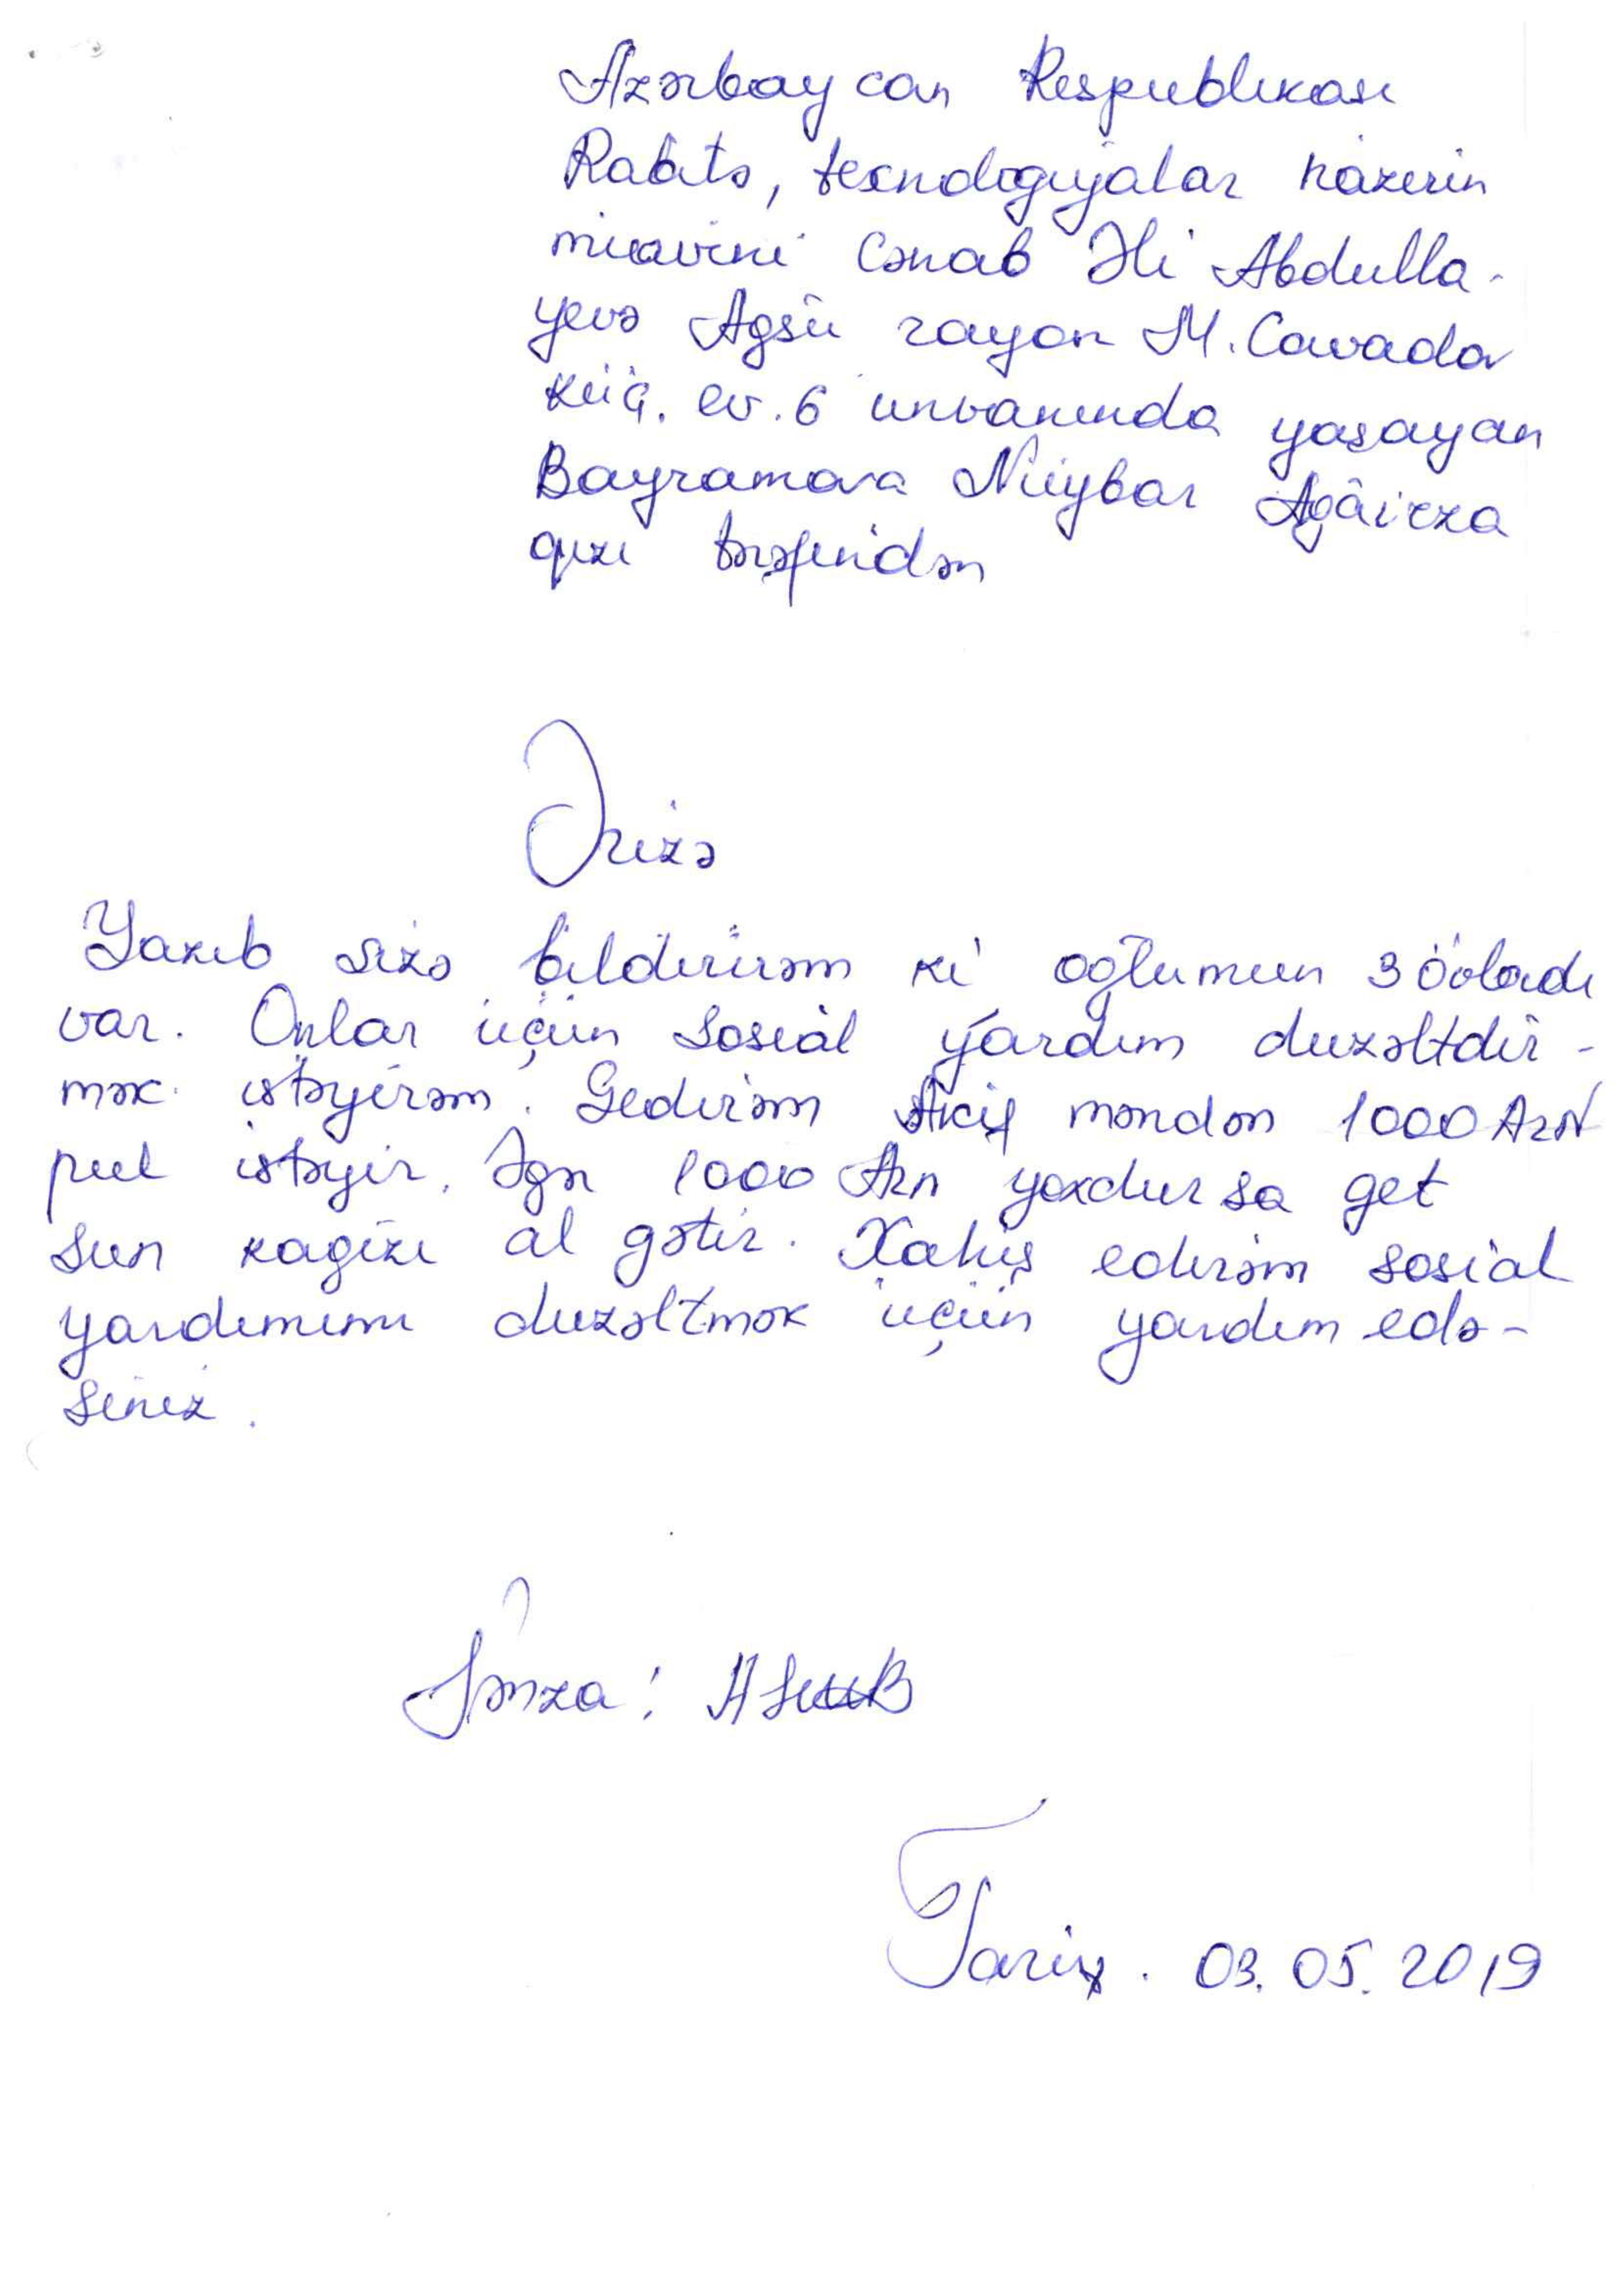 Azərbaycan Respublikası
Rabitə, texnologiyalar nazirin
müavini Cənab Əli Abdulla-
yevə Agsu rayon M. Cavada
küç. ev. 6 ünvanında yaşayan
Bayramova Nüybar Ağairza
qızı tərəfindən
Ərizə
Yazıb sizə bildirirəm ki oğlumun 3 övladı
var. Onlar üçün sosial yardım duzəltdir-
mək istəyirəm. Gedirəm Akif məndən 1000 Azn
pul istəyir. Əgər 1000 Azn yoxdursa get
sun kagızı al gətir. Xahiş edirəm sosial
yardımımı duzəltmək üçün yardım edə-
siniz.
İmza:
Tarix. 03.05.2019